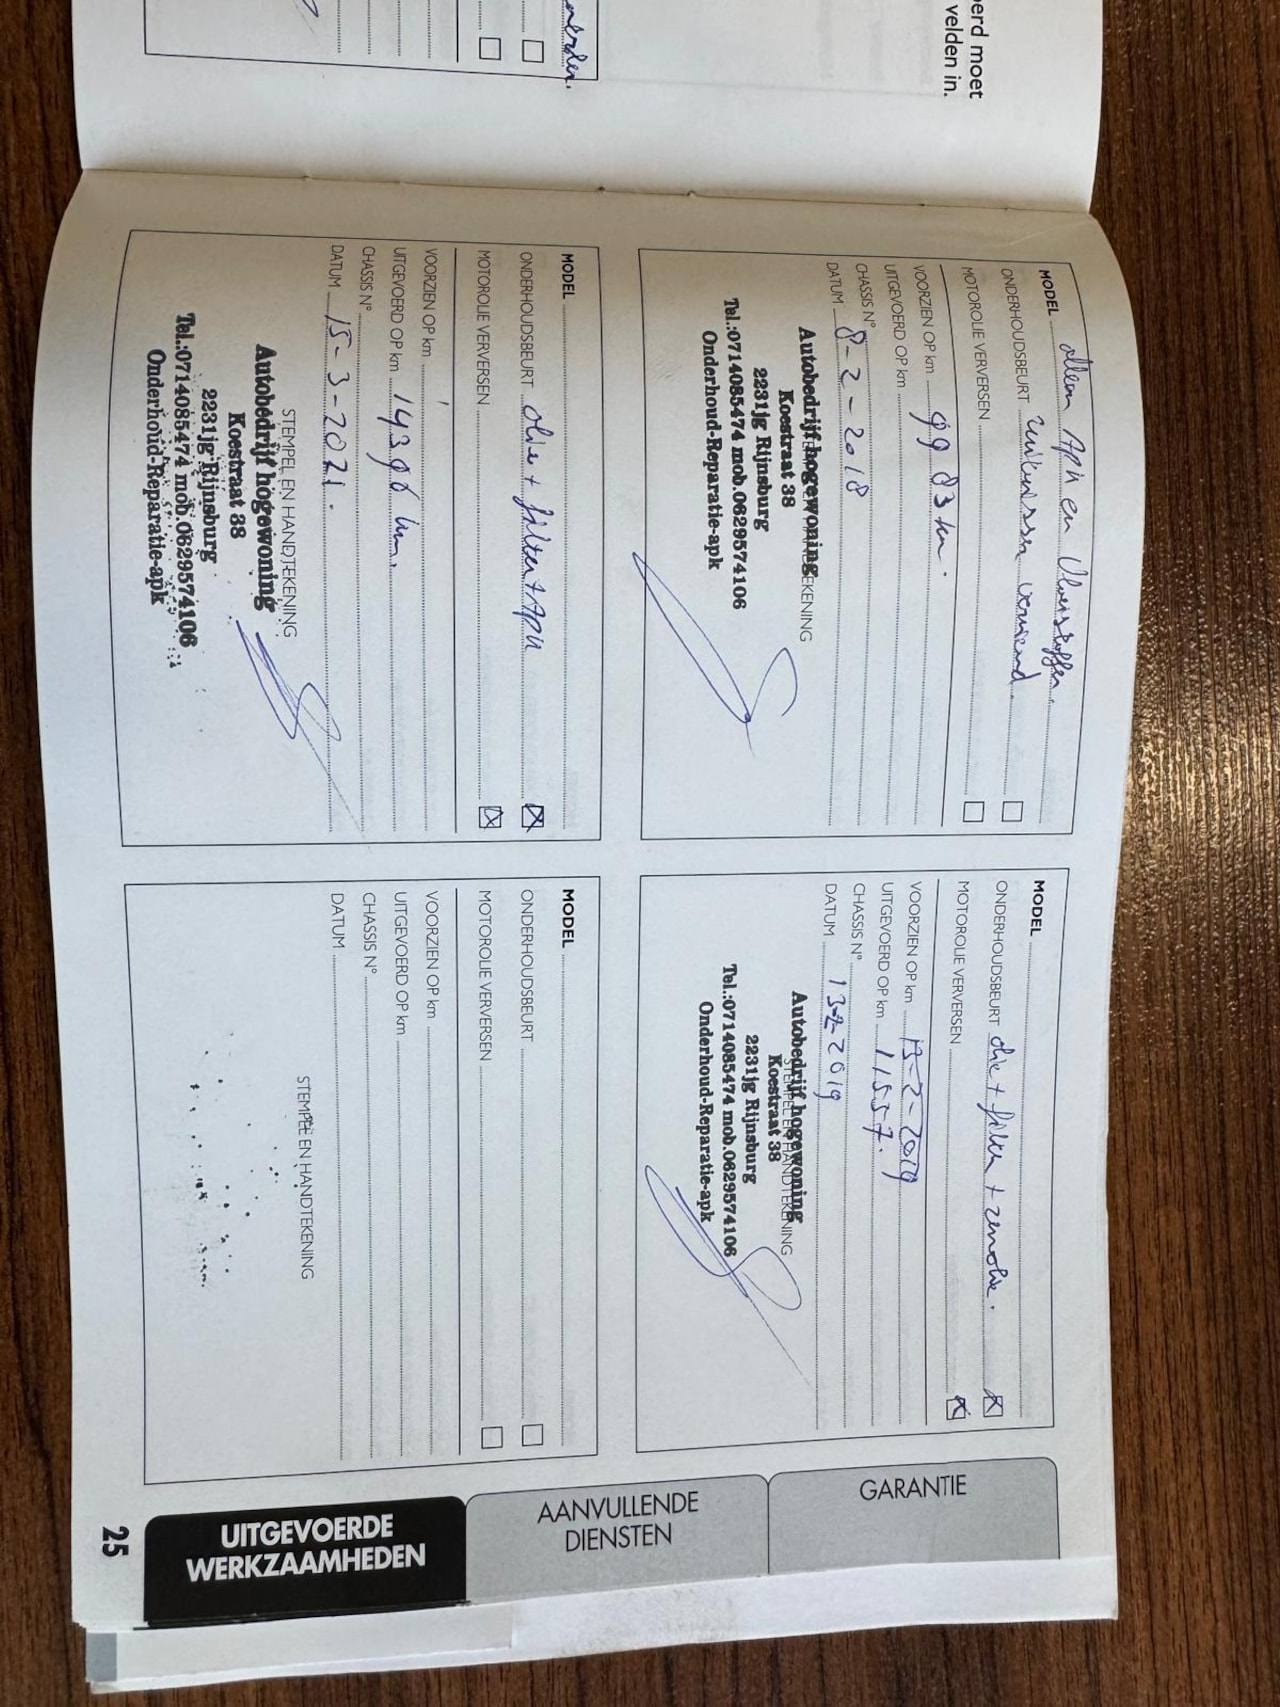 oerd moet
velden in.
MODEL alleen APK en Vloeistoffen.
ONDERHOUDSBEURT ruitenwissers vernieuwd
MOTOROLIE VERVERSEN
VOORZIEN OP km 99 83 km.
UITGEVOERD OP km
CHASSIS N°
DATUM 8-2-2018
STEMPEL EN HANDTEKENING
Autobedrijf hogewoning
Koestraat 38
2231jg Rijnsburg
Tel.:0714085474 mob.0629574106
Onderhoud-Reparatie-apk
MODEL
ONDERHOUDSBEURT olie + filter + remolie.
MOTOROLIE VERVERSEN
VOORZIEN OP km 13-2-2019
UITGEVOERD OP km 11557.
CHASSIS N°
DATUM 13-2-2019
STEMPEL EN HANDTEKENING
Autobedrijf hogewoning
Koestraat 38
2231jg Rijnsburg
Tel.:0714085474 mob.0629574106
Onderhoud-Reparatie-apk
MODEL
ONDERHOUDSBEURT olie + filter + APK
MOTOROLIE VERVERSEN
VOORZIEN OP km
UITGEVOERD OP km 14396 km.
CHASSIS N°
DATUM 15-3-2021.
STEMPEL EN HANDTEKENING
Autobedrijf hogewoning
Koestraat 38
2231jg Rijnsburg
Tel.:0714085474 mob.0629574106
Onderhoud-Reparatie-apk
MODEL
ONDERHOUDSBEURT
MOTOROLIE VERVERSEN
VOORZIEN OP km
UITGEVOERD OP km
CHASSIS N°
DATUM
STEMPEL EN HANDTEKENING
GARANTIE
AANVULLENDE
DIENSTEN
UITGEVOERDE
WERKZAAMHEDEN
25